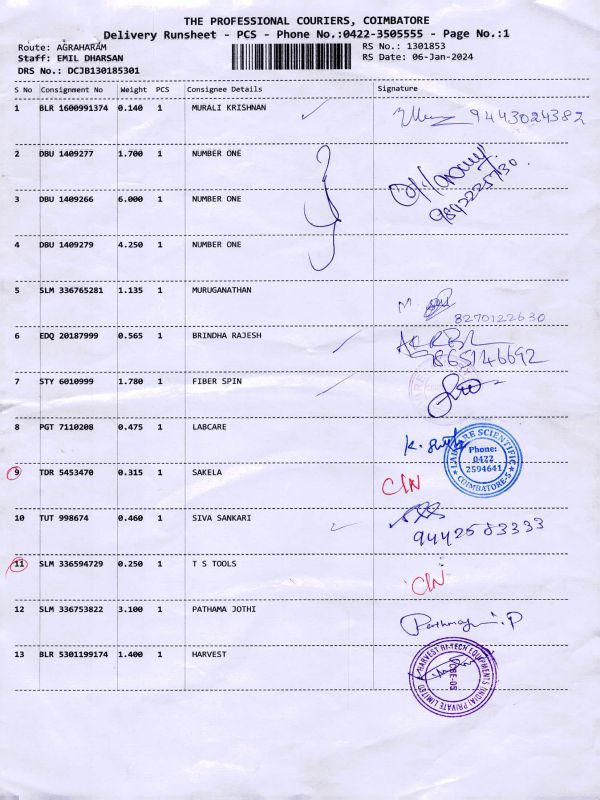 THE PROFESSIONAL COURIERS, COIMBATORE
Delivery Runsheet - PCS - Phone No.:0422-3505555 - Page No.:1
Route: AGRAHARAM RS No.: 1301853
Staff: EMIL DHARSAN RS Date: 06-Jan-2024
DRS No.: DCJB130185301
S No Consignment No Weight PCS Consignee Details Signature
1 BLR 1600991374 0.140 1 MURALI KRISHNAN 9443024382
2 DBU 1409277 1.700 1 NUMBER ONE
9842225730
3 DBU 1409266 6.000 1 NUMBER ONE
4 DBU 1409279 4.250 1 NUMBER ONE
5 SLM 336765281 1.135 1 MURUGANATHAN
8270122630
6 EDQ 20187999 0.565 1 BRINDHA RAJESH
865146692
7 STY 6010999 1.780 1 FIBER SPIN
8 PGT 7110208 0.475 1 LABCARE
LABCARE SCIENTIFIC
Phone:
0422
2594641
COIMBATORE-5
9 TDR 5453470 0.315 1 SAKELA C/N
10 TUT 998674 0.460 1 SIVA SANKARI
9442583333
11 SLM 336594729 0.250 1 T S TOOLS C/N
12 SLM 336753822 3.100 1 PATHAMA JOTHI
13 BLR 5301199174 1.400 1 HARVEST
HARVEST HI-TECH EQUIPMENTS (INDIA) PRIVATE LIMITED
CBE-05